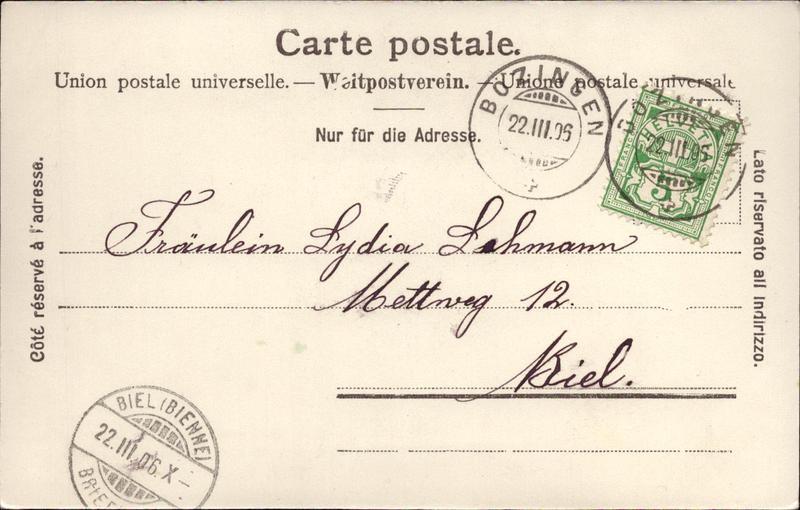 Carte postale.
Union postale universelle. — Weltpostverein. — Unione postale universale
Nur für die Adresse.
BÖZINGEN
22.III.06
BÖZINGEN
22.III.06
HELVETIA
5
Côté réservé à l'adresse.
Lato riservato all indirizzo.
Fräulein Lydia Lehmann
Mettweg 12.
Biel.
BIEL (BIENNE)
22.III.06.X–